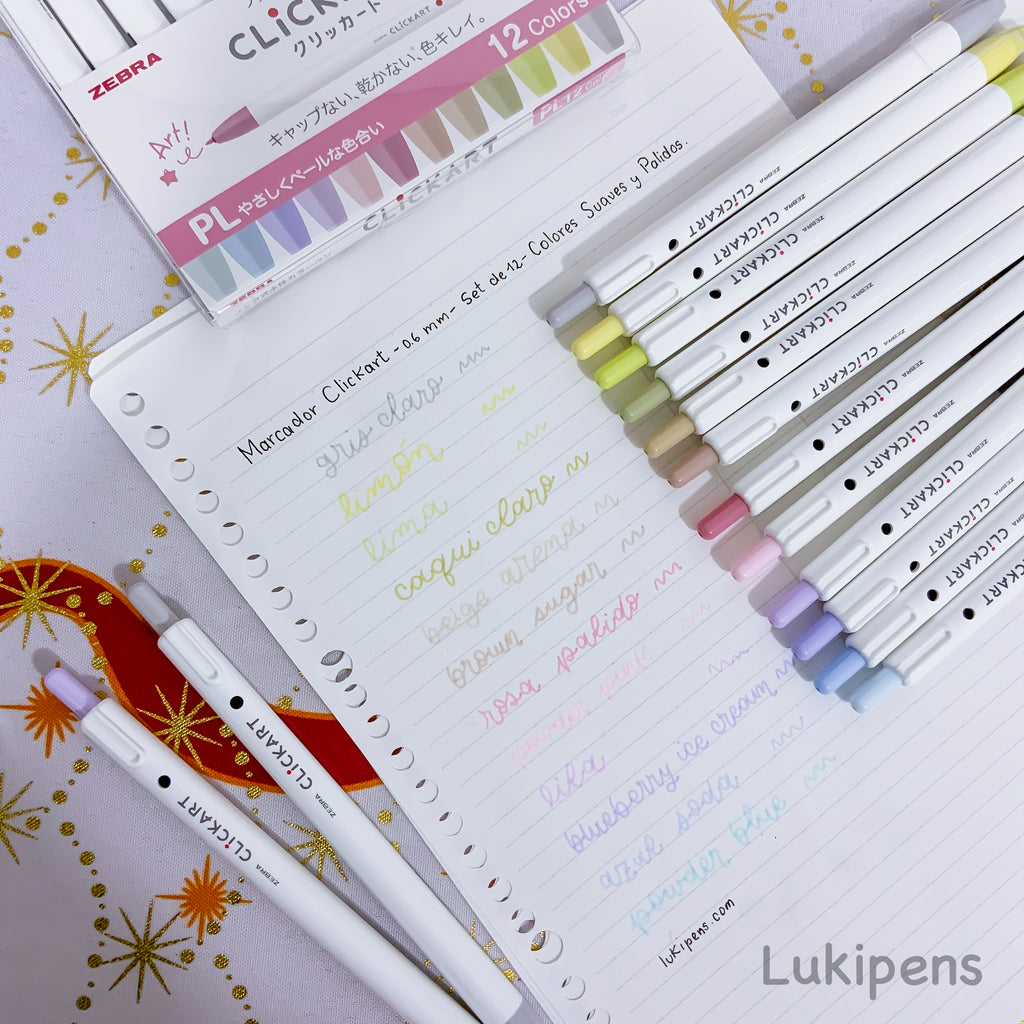 CLiCKART
クリッカート
CLiCKART
ZEBRA
Art!
キャップない、乾かない、色キレイ。
12 Colors
PL やさしくペールな色合い
PL12
CLiCKART
ZEBRA
Marcador Clickart - 0.6 mm - Set de 12 - Colores Suaves y Palidos.
gris claro
limón
lima
caqui claro
beige arena
brown sugar
rosa palido
powder pink
lila
blueberry ice cream
azul soda
powder blue
lukipens.com
CLiCKART ZEBRA
CLiCKART ZEBRA
CLiCKART ZEBRA
CLiCKART ZEBRA
CLiCKART ZEBRA
CLiCKART ZEBRA
CLiCKART ZEBRA
CLiCKART ZEBRA
CLiCKART ZEBRA
CLiCKART ZEBRA
CLiCKART
CLiCKART
CLiCKART ZEBRA
CLiCKART ZEBRA
Lukipens